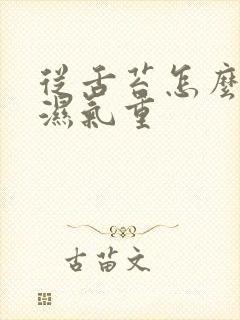 從舌苔怎麼
濕氣重
古苗文